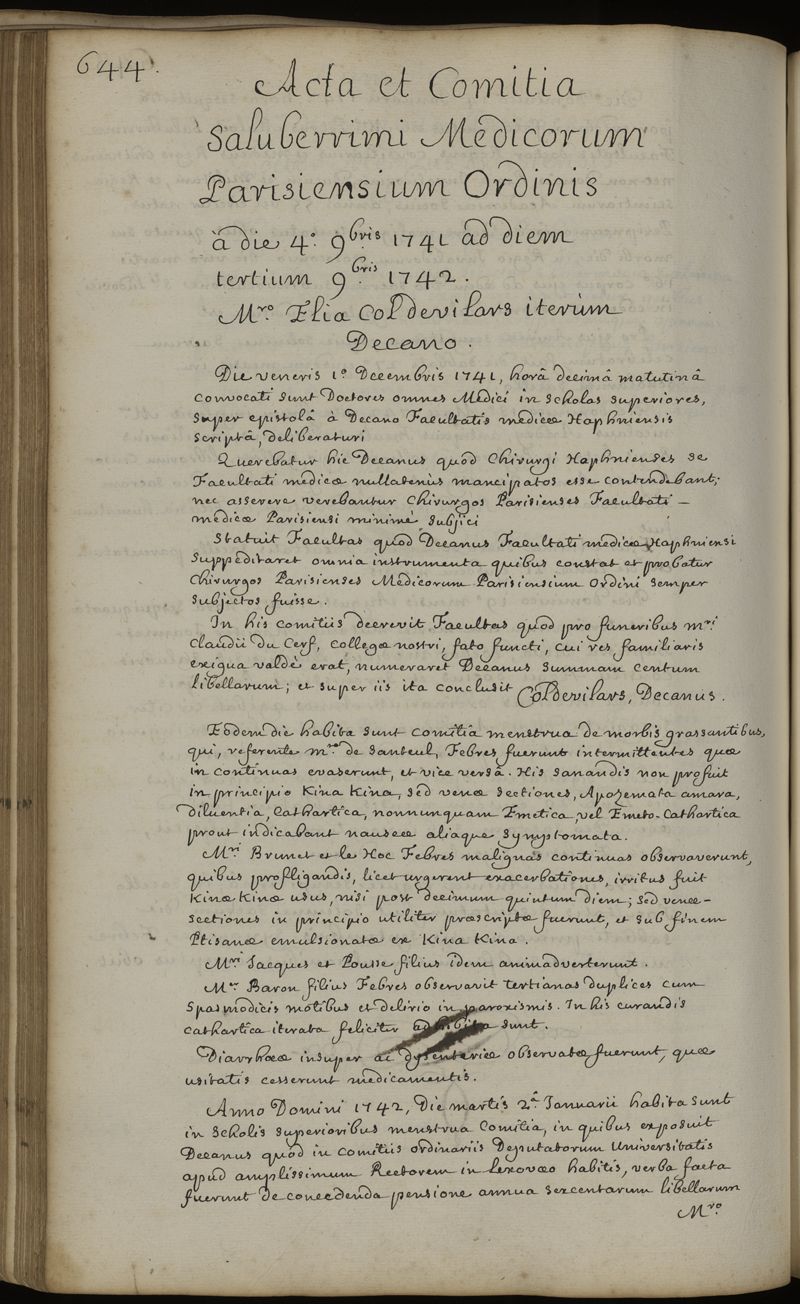 644.
Acta et Comitia
Saluberrimi Medicorum
Parisiensium Ordinis
à die 4.° 9.bris 1741 ad diem
tertium 9.bris 1742.
M.ro Elia Coldevilars iterùm
Decano.
Die veneris 1.° Decembris 1741, horâ decimâ matutinâ
convocati sunt Doctores omnes Medici in scholas superiores,
super epistolâ à Decano Facultatis medicæ Haphniensis
scriptâ, deliberaturi
Querebatur hic Decanus quod Chirurgi Haphnienses se
Facultati medicæ nullatenùs mancipatos esse contendebant;
nec asserere verebantur Chirurgos Parisienses Facultati –
medicæ Parisiensi minimè subjici
Statuit Facultas quod Decanus Facultati medicæ Haphniensi
suppeditaret omnia instrumenta quibus constat et probatur
Chirurgos Parisienses Medicorum Parisiensium Ordini semper
subjectos fuisse.
In his comitiis decrevit Facultas quod pro funeribus m.ri
Claudii du Cerf, collegæ nostri, fato functi, cui res familiaris
exigua valdè erat, numeraret Decanus summam centum
libellarum; et super iis ita conclusit Coldevilars, Decanus.
Eodem die habita sunt comitia menstrua de morbis grassantibus,
qui, referente m.ro de Santeul, Febres fuerunt intermittentes quæ
in continuas evaserunt, et vice versâ. His sanandis non profuit
in principio Kina Kina, sed venæ sectiones, Apozemata amara,
diluentia, Cathartica, nonnunquam Emetica, vel Emeto-Cathartica
prout indicabant nauseæ aliaque symptomata.
M.ri Brunet et le Hoc Febres malignas continuas observaverunt,
quibus profligandis, licet urgerent exacerbationes, irritus fuit
Kinæ Kinæ usus, nisi post decimum quintum diem; sed venæ-
sectiones in principio utiliter præscriptæ fuerunt, et sub finem
Ptisanæ emulsionatæ ex Kina Kina.
M.ri Jacques et Pousse filius idem animadverterunt.
M.er Baron filius Febres observavit tertianas duplices cum
spasmodicis motibus et delirio in paroxismis. In his curandis
cathartica iterata feliciter adhibita sunt.
Diarrhoeæ insuper ac dysenteriæ observatæ fuerunt, quæ
usitatis cesserunt medicamentis.
Anno Domini 1742, Die martis 2.a Januarii habita sunt
in scholis superioribus menstrua Comitia, in quibus exposuit
Decanus quod in comitiis ordinariis Deputatorum Universitatis
apud amplissimum Rectorem in Lexovæo habitis, verba facta
fuerunt de concedenda pensione annua sexcentarum libellarum
M.ro